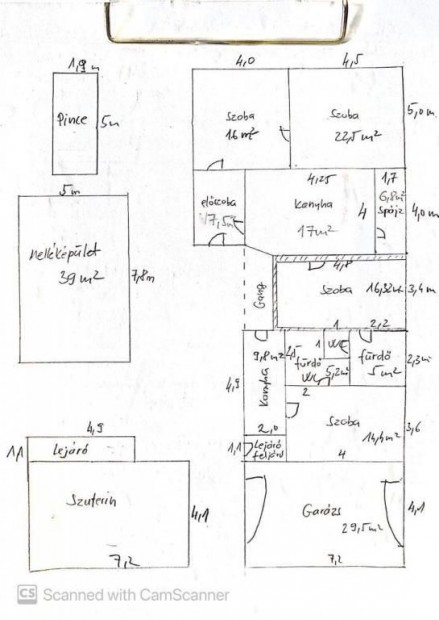 1,9 m
Pince
5m
4,0
4,5
Szoba
16 m²
Szoba
22,5 m²
5,0 m
előszoba
7,5 m²
4,25
Konyha
17 m²
4
1,7
6,8 m²
Spájz
4,0 m
5m
melléképület
39 m²
7,8m
Gang
4,8
Szoba
16,32 m²
3,4 m
1
2,2
9,8 m²
Konyha
4,9
2,0
fürdő
WC
5,2 m²
2
1
WC
fürdő
5 m²
2,3m
Szoba
14,4 m²
4
3,6
1,1
Lejáró
feljáró
4,9
1,1
Lejáró
Szuterin
4,1
7,2
Garázs
29,5 m²
4,1
7,2
CS Scanned with CamScanner